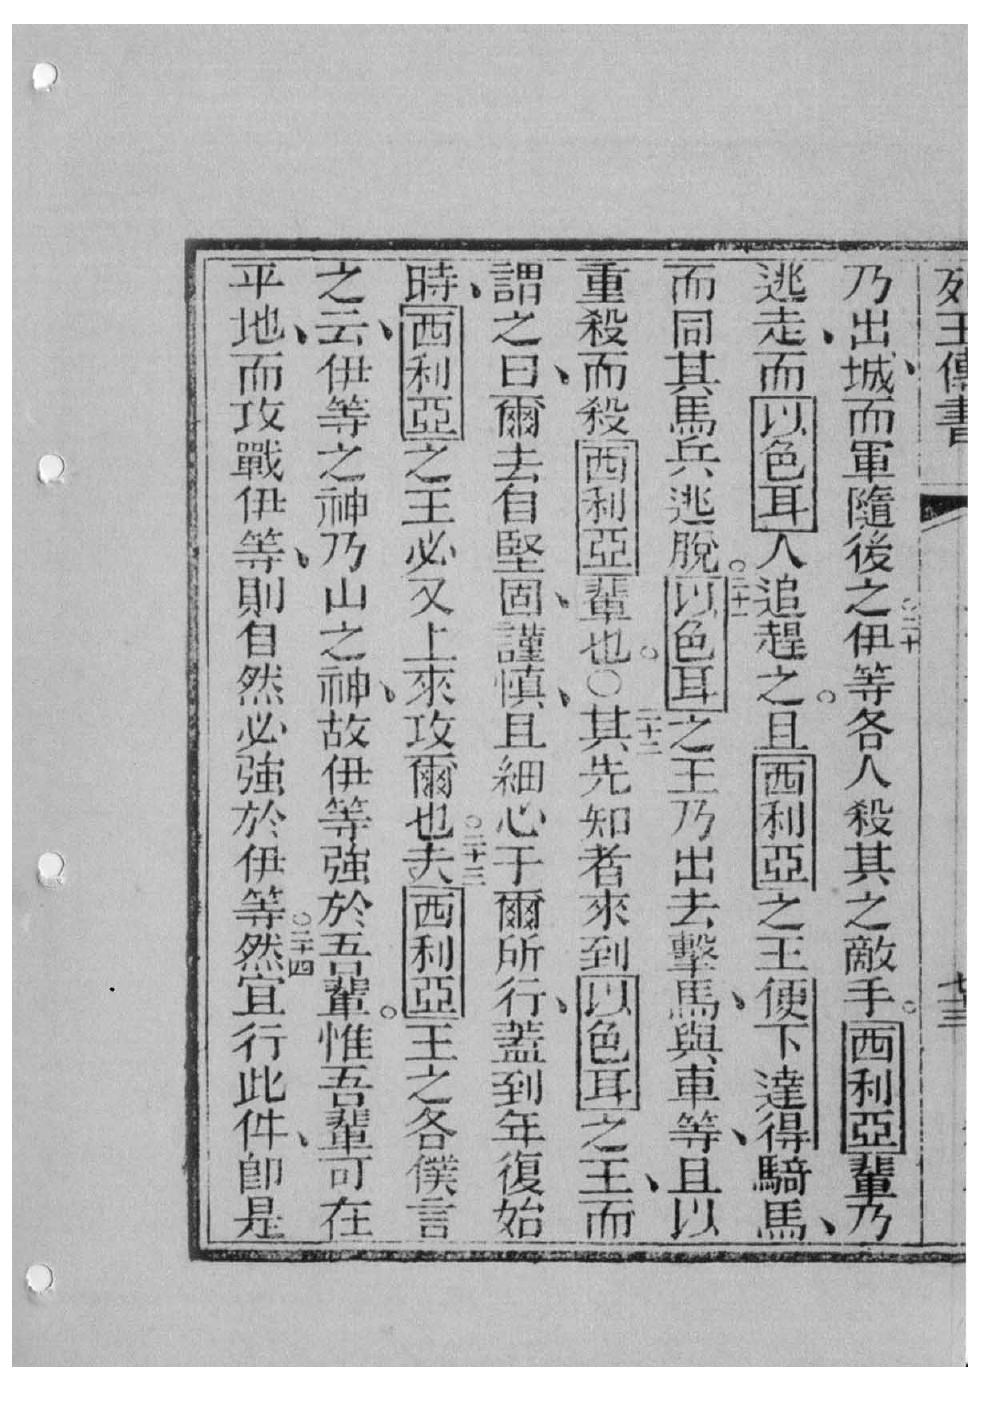 列王傳書
乃出城、而軍隨後之○二十伊等各人殺其之敵手。西利亞輩乃
逃走、而以色耳人追趕之。且西利亞之王便下達得騎馬、
而同其馬兵逃脫。○二十一以色耳之王乃出去擊馬、與車等、且以
重殺而殺西利亞輩也。○○二十二其先知者來到以色耳之王、而
謂之曰、爾去自堅固、謹慎、且細心于爾所行、蓋到年復始
時、西利亞之王必又上來攻爾也○二十三夫西利亞王之各僕言
之云、伊等之神乃山之神、故伊等強於吾輩。惟吾輩可在
平地、而攻戰伊等、則自然必強於伊等○二十四然宜行此件、卽是